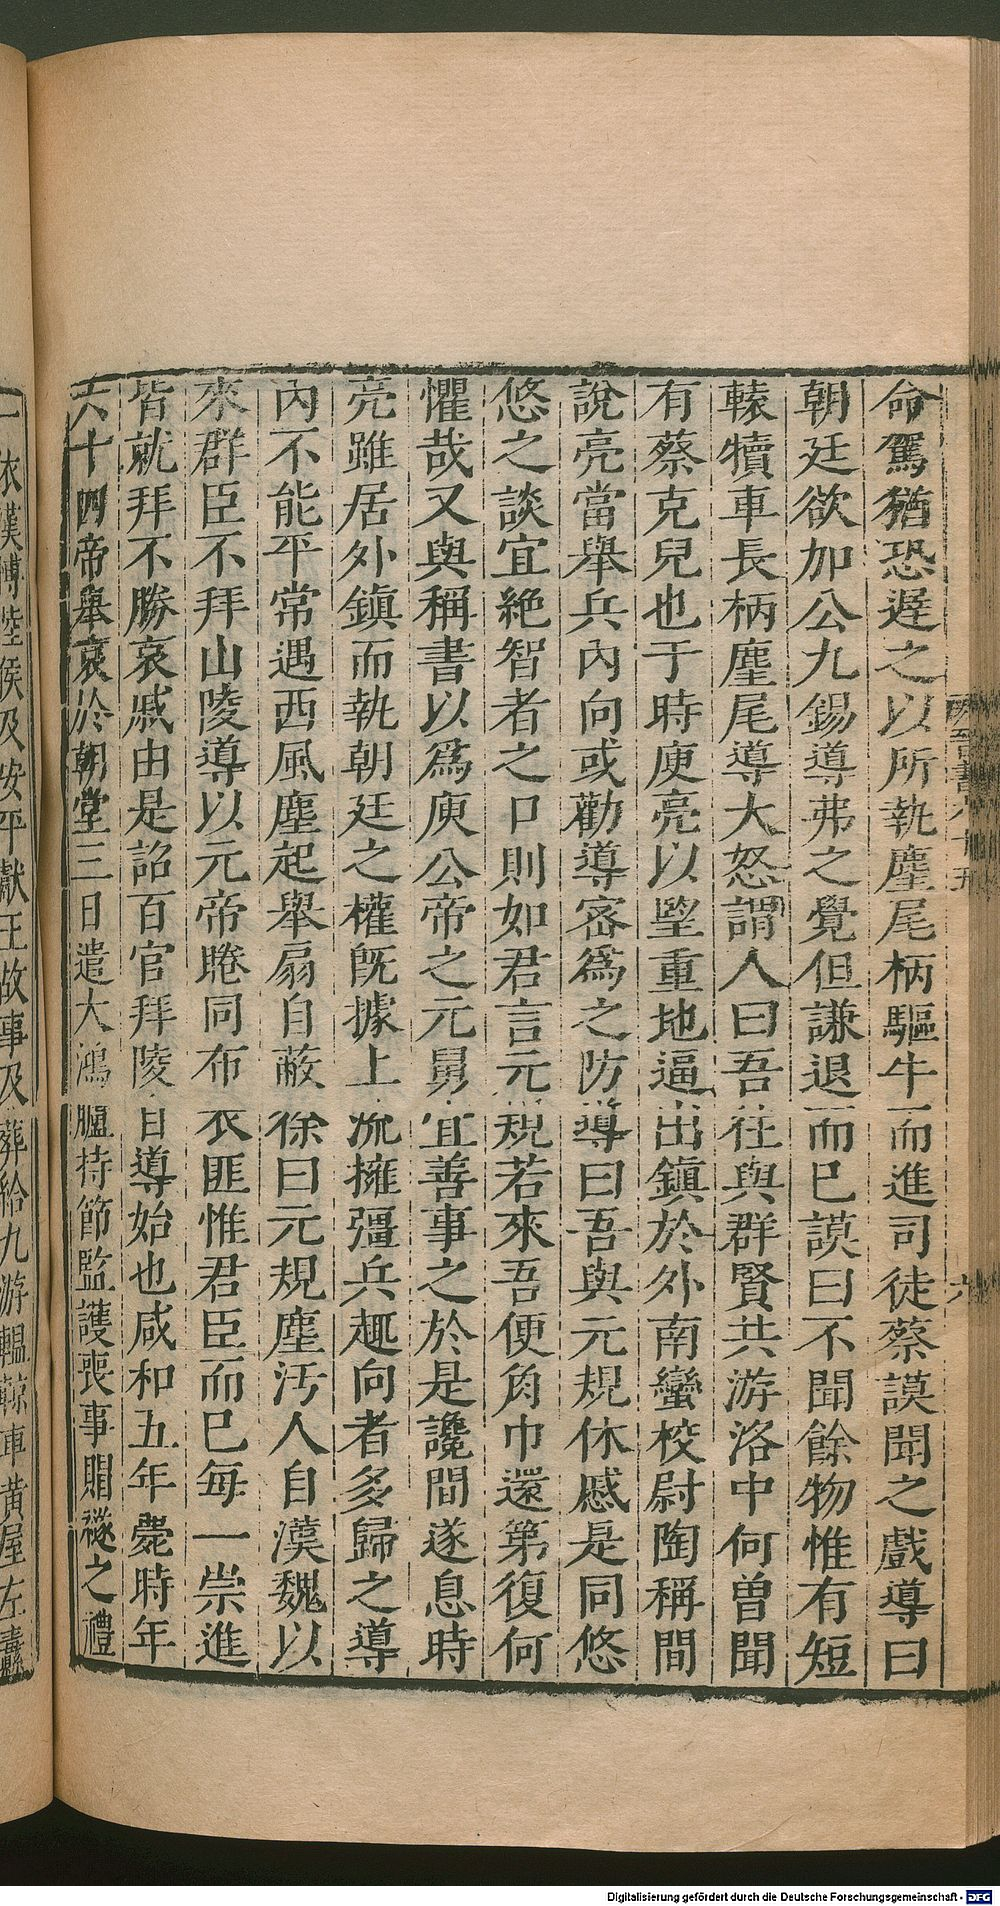 命駕猶恐遲之以所執麈尾柄驅牛而進司徒蔡謨聞之戲導曰
朝廷欲加公九錫導弗之覺但謙退而已謨曰不聞餘物惟有短
轅犢車長柄麈尾導大怒謂人曰吾往與群賢共游洛中何曾聞
有蔡克兒也于時庾亮以望重地逼出鎮於外南蠻校尉陶稱間
說亮當舉兵內向或勸導密爲之防導曰吾與元規休慼是同悠
悠之談宜絶智者之口則如君言元規若來吾便角巾還第復何
懼哉又與稱書以爲庾公帝之元舅宜善事之於是讒間遂息時
亮雖居外鎮而執朝廷之權旣據上流擁彊兵趣向者多歸之導
內不能平常遇西風塵起舉扇自蔽徐曰元規塵汚人自漢魏以
來群臣不拜山陵導以元帝睠同布衣匪惟君臣而已每一崇進
皆就拜不勝哀戚由是詔百官拜陵自導始也咸和五年薨時年
六十四帝舉哀於朝堂三日遣大鴻臚持節監護喪事賵襚之禮
一依漢博陸侯及安平獻王故事及葬給九游轀輬車黃屋左纛
Digitalisierung gefördert durch die Deutsche Forschungsgemeinschaft - DFG